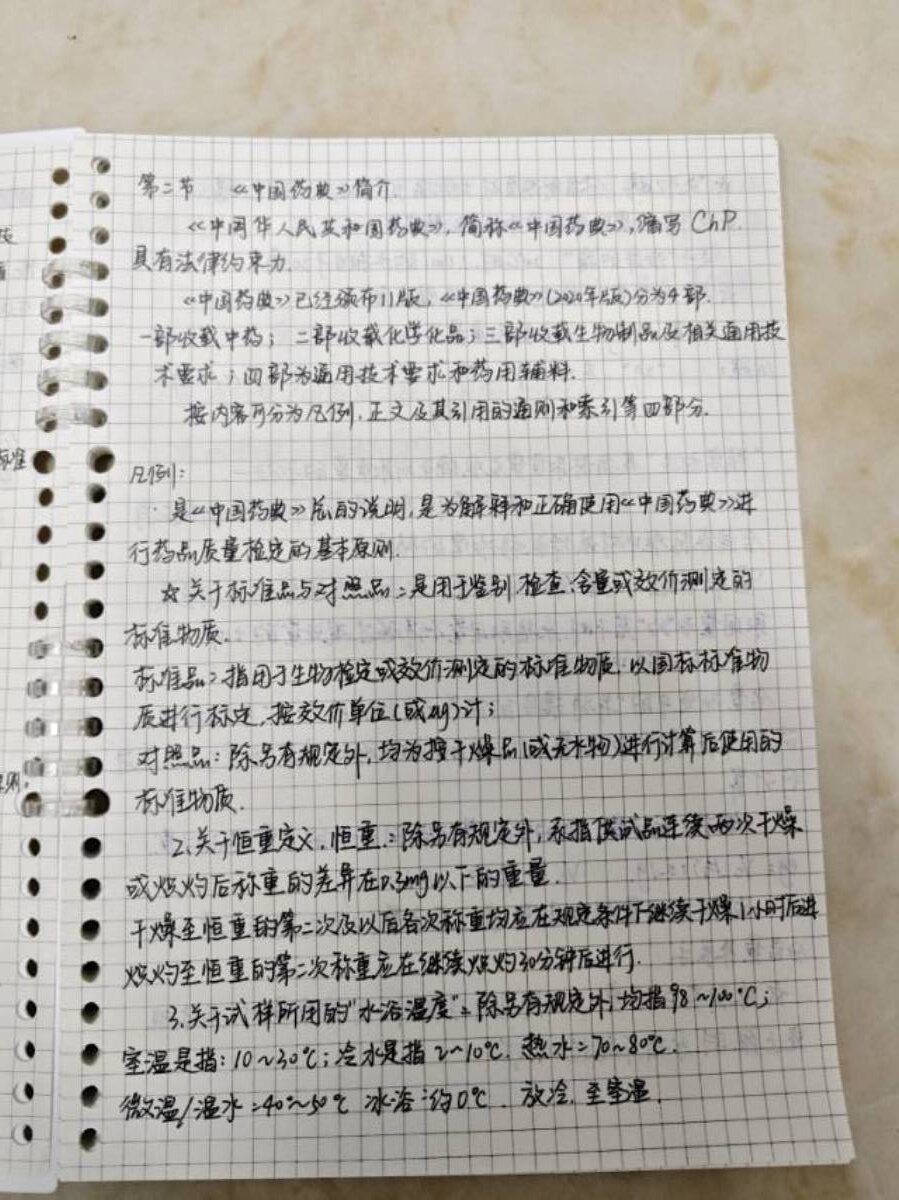 第二节 《中国药典》简介
《中国华人民共和国药典》,简称《中国药典》,缩写 ChP.
具有法律约束力.
《中国药典》已经颁布11版,《中国药典》(2020年版)分为4部.
一部收载中药;二部收载化学化品;三部收载生物制品及相关通用技
术要求;四部为通用技术要求和药用辅料.
按内容可分为凡例、正文及其引用的通则和索引等四部分.
凡例:
是《中国药典》总的说明,是为解释和正确使用《中国药典》进
行药品质量检定的基本原则.
☆关于标准品与对照品:是用于鉴别、检查、含量或效价测定的
标准物质.
标准品:指用于生物检定或效价测定的标准物质,以国标标准物
质进行标定,按效价单位(或μg)计;
对照品:除另有规定外,均为按干燥品(或无水物)进行计算后使用的
标准物质.
2.关于恒重定义,恒重:除另有规定外,系指供试品连续两次干燥
或炽灼后称重的差异在0.3mg以下的重量.
干燥至恒重的第二次及以后各次称重均应在规定条件下继续干燥1小时后进
炽灼至恒重的第二次称重应在继续炽灼30分钟后进行.
3.关于试样所用的"水浴温度":除另有规定外,均指98~100℃;
室温是指:10~30℃;冷水是指2~10℃.热水=70~80℃.
微温/温水=40~50℃ 冰浴:约0℃. 放冷.至室温.
标准
则.